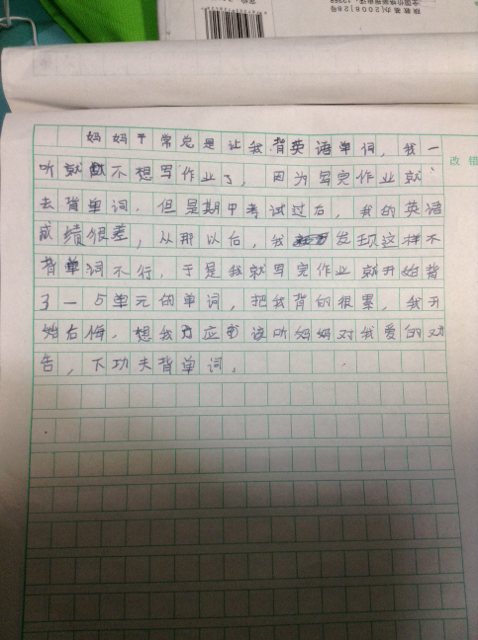 全国价格举报电话：12358
妈妈平常总是让我背英语单词，我一
改错
听就不想写作业了，因为写完作业就
去背单词。但是期中考试过后，我的英语
成绩很差，从那以后，我发现这样不
背单词不行，于是我就写完作业就开始背
了一5单元的单词，把我背的很累，我开
始右悔。想我应该听妈妈对我爱的劝
告，下功夫背单词。